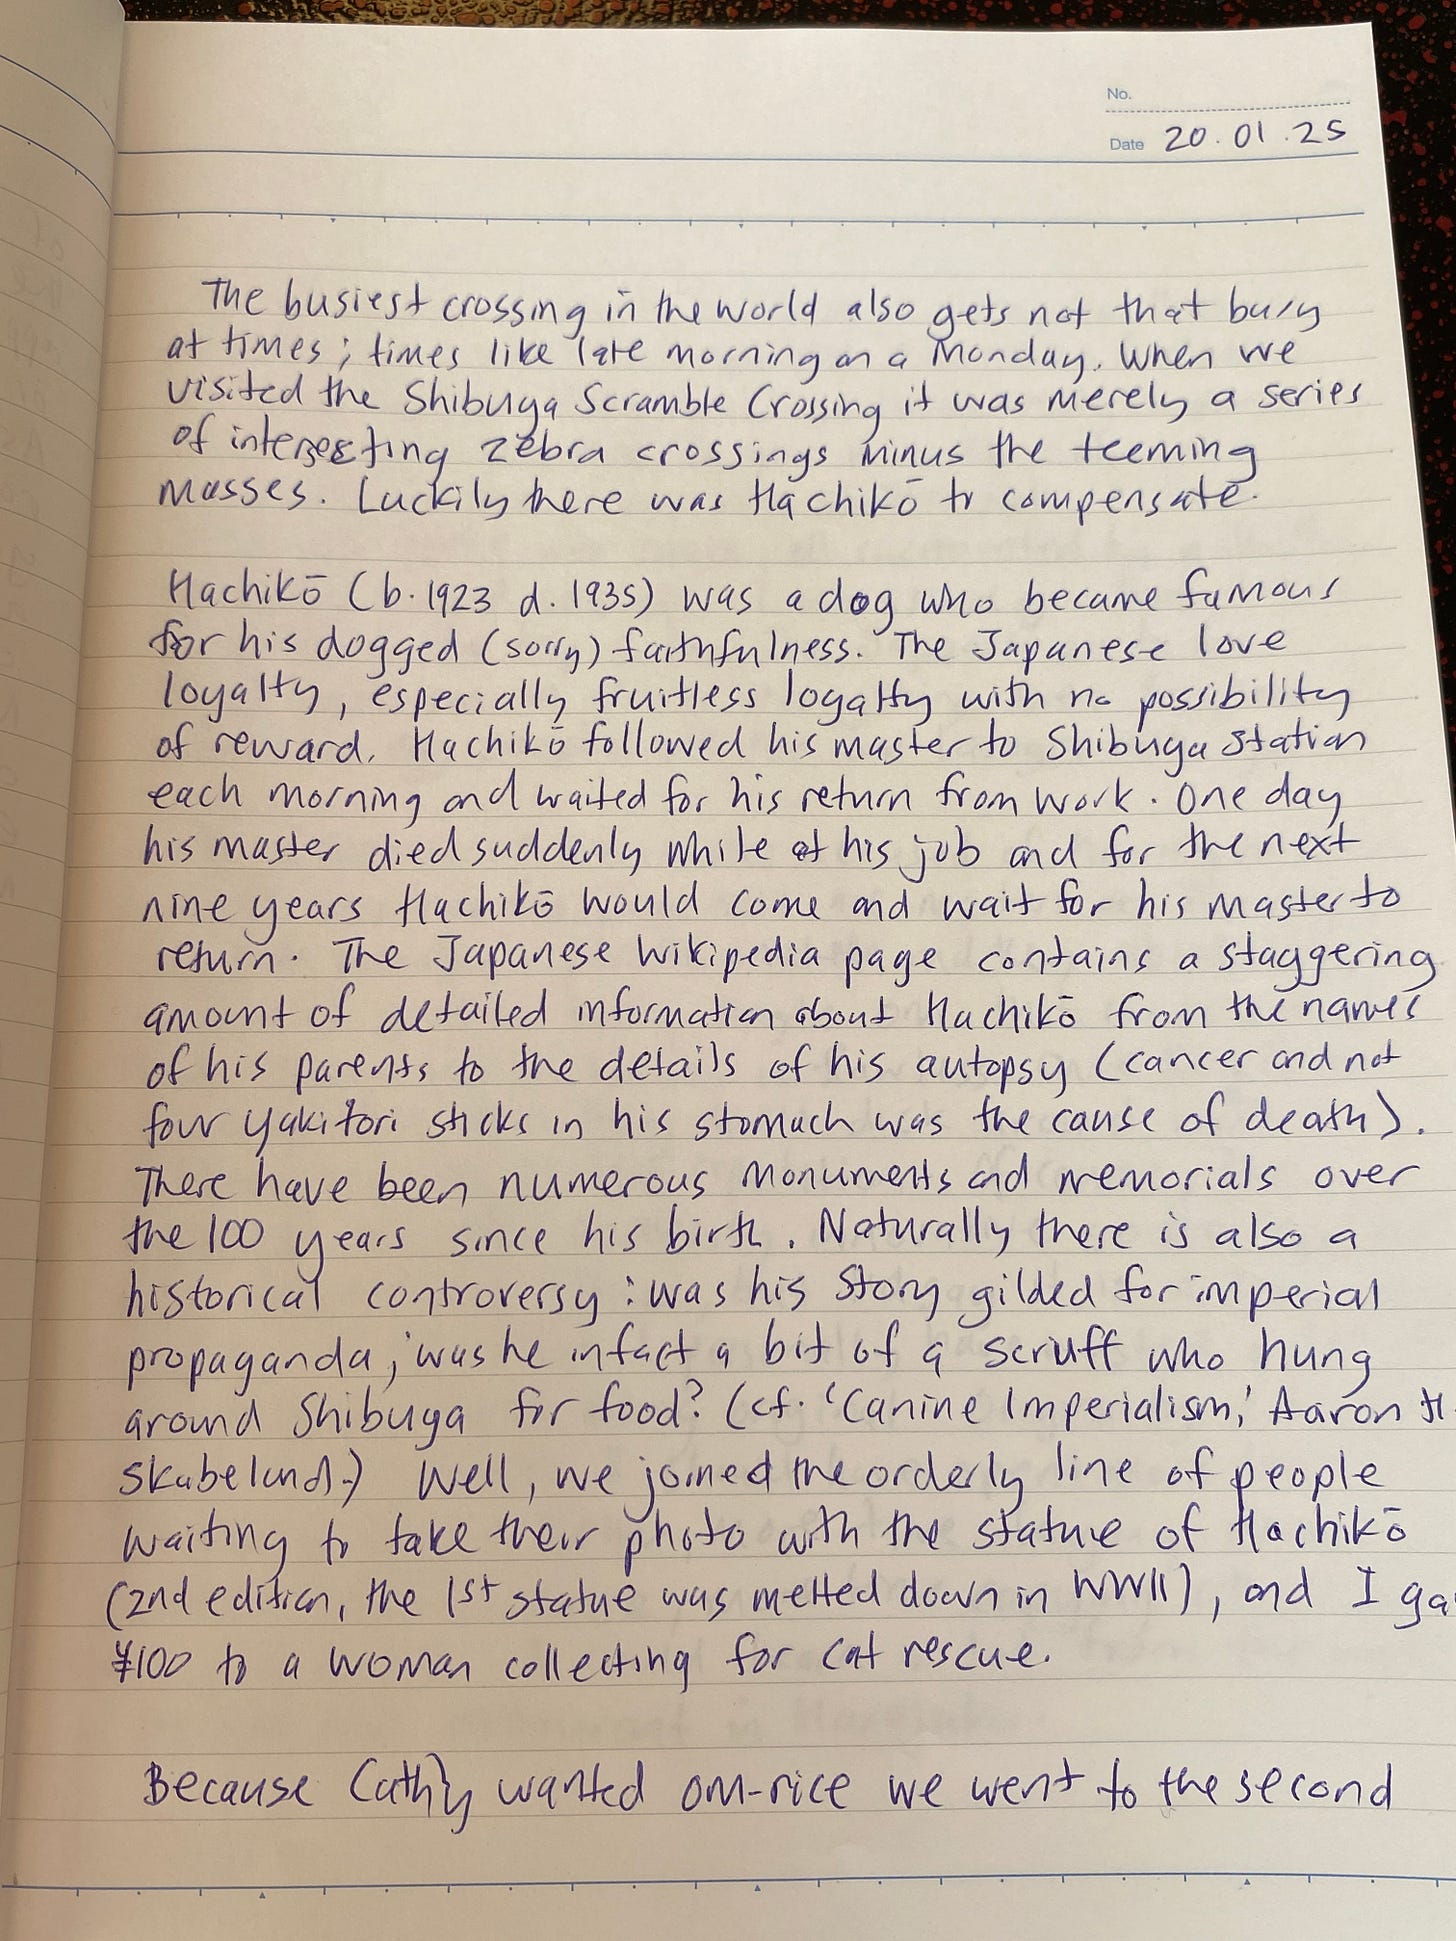 No.
Date 20.01.25
The busiest crossing in the world also gets not that busy
at times; times like late morning on a Monday. When we
visited the Shibuya Scramble Crossing it was merely a series
of intersecting zebra crossings minus the teeming
masses. Luckily there was Hachikō to compensate.
Hachikō (b. 1923 d. 1935) was a dog who became famous
for his dogged (sorry) faithfulness. The Japanese love
loyalty, especially fruitless loyalty with no possibility
of reward. Hachikō followed his master to Shibuya Station
each morning and waited for his return from work. One day
his master died suddenly while at his job and for the next
nine years Hachikō would come and wait for his master to
return. The Japanese Wikipedia page contains a staggering
amount of detailed information about Hachikō from the names
of his parents to the details of his autopsy (cancer and not
four yakitori sticks in his stomach was the cause of death).
There have been numerous monuments and memorials over
the 100 years since his birth. Naturally there is also a
historical controversy: was his story gilded for imperial
propaganda; was he in fact a bit of a scruff who hung
around Shibuya for food? (cf. 'Canine Imperialism,' Aaron H.
Skabelund.) Well, we joined the orderly line of people
waiting to take their photo with the statue of Hachikō
(2nd edition, the 1st statue was melted down in WWII), and I ga
¥100 to a woman collecting for cat rescue.
Because Cathy wanted om-rice we went to the second